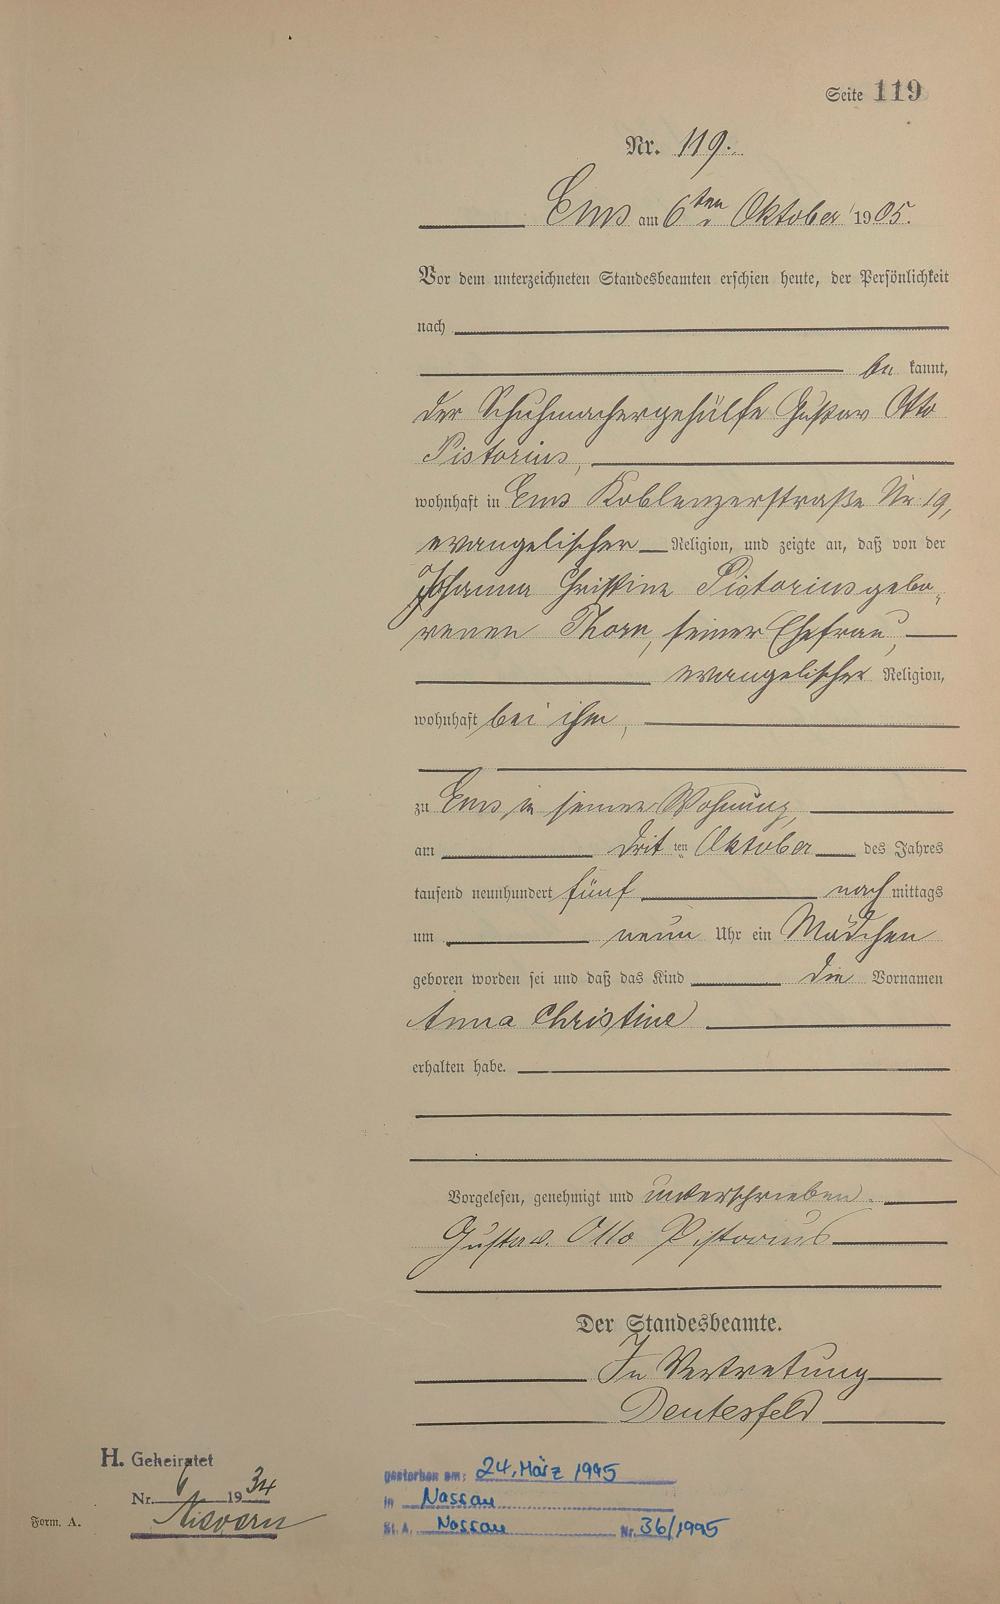 Seite 119
Nr. 119.
Ems am 6ten Oktober 1905.
Vor dem unterzeichneten Standesbeamten erschien heute, der Persönlichkeit
nach
be kannt,
der Schuhmachergehülfe Gustav Otto
Pistorius,
wohnhaft in Ems Koblenzerstraße Nr 19,
evangelischer Religion, und zeigte an, daß von der
Johanna Christine Pistorius gebo-
renen Thorn, seiner Ehefrau,
evangelischer Religion,
wohnhaft bei ihm,
zu Ems in seiner Wohnung,
am dritten Oktober des Jahres
tausend neunhundert fünf nach mittags
um neun Uhr ein Mädchen
geboren worden sei und daß das Kind die Vornamen
Anna Christine
erhalten habe.
Vorgelesen, genehmigt und unterschrieben.
Gustav. Otto Pistorius
Der Standesbeamte.
In Vertretung
Deutesfeld
H. Geheiratet
Nr. 6 1934
Form. A.
gestorben am: 24. März 1995
in Nassau
St. A. Nassau Nr. 36/1995